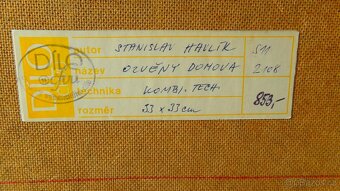 autor STANISLAV HAVLÍK S11
název OZVĚNY DOMOVA 2108
technika KOMBI. TECH. 853,-
rozměr 33 x 33 cm
DÍLO
DÍLO